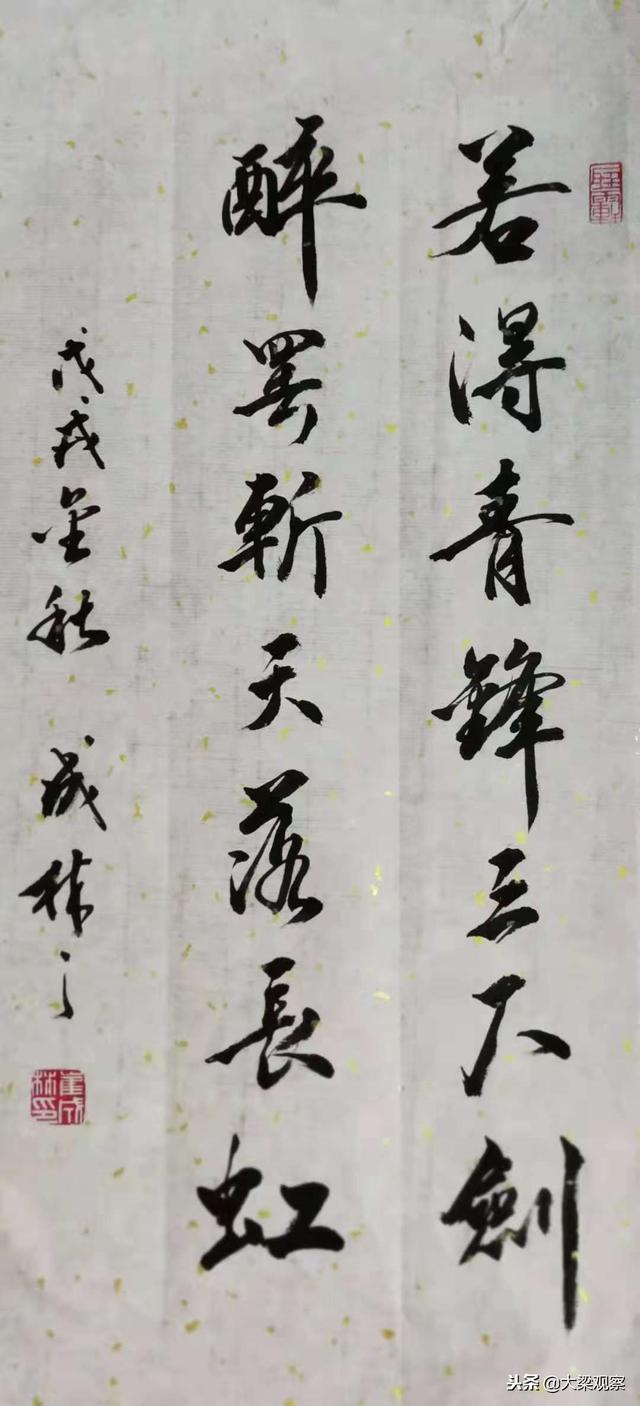 若得青鋒三尺劍
醉罢斬天落長虹
戊戌金秋 成林
崔成林印
头条 @大梁观察